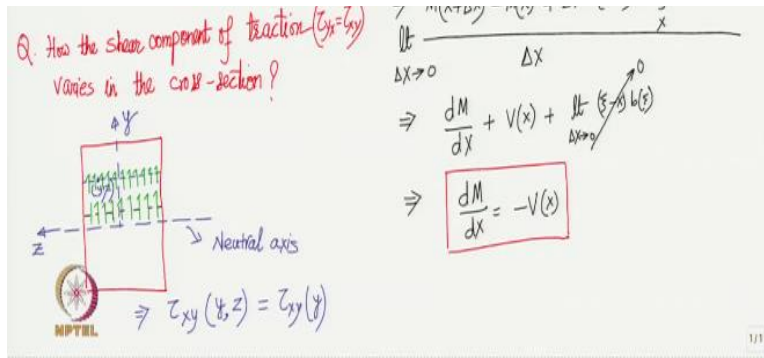 Q. How the shear component of traction (τyx=τxy)
varies in the cross-section?
y
(y,z)
z
Neutral axis
⇒ τxy (y,z) = τxy(y)
NPTEL
lt
Δx→0
Δx
⇒ dM/dx + V(x) + lt Δx→0 (ξ-x) b(ξ) 0
⇒ dM/dx = -V(x)
1/1